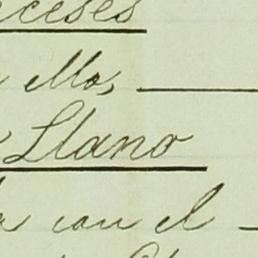 ceses
ella,
Llano
con el